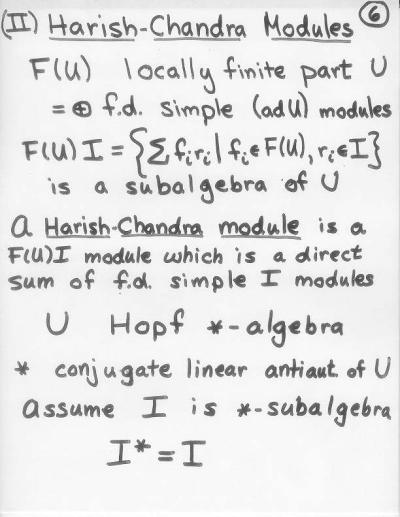 (II) Harish-Chandra Modules ⑥
F(U) locally finite part U
= ⊕ f.d. simple (ad U) modules
F(U)I = {∑ fᵢrᵢ | fᵢ ∈ F(U), rᵢ ∈ I}
is a subalgebra of U
A Harish-Chandra module is a
F(U)I module which is a direct
sum of f.d. simple I modules
U Hopf *-algebra
* conjugate linear antiaut. of U
Assume I is *-subalgebra
I* = I